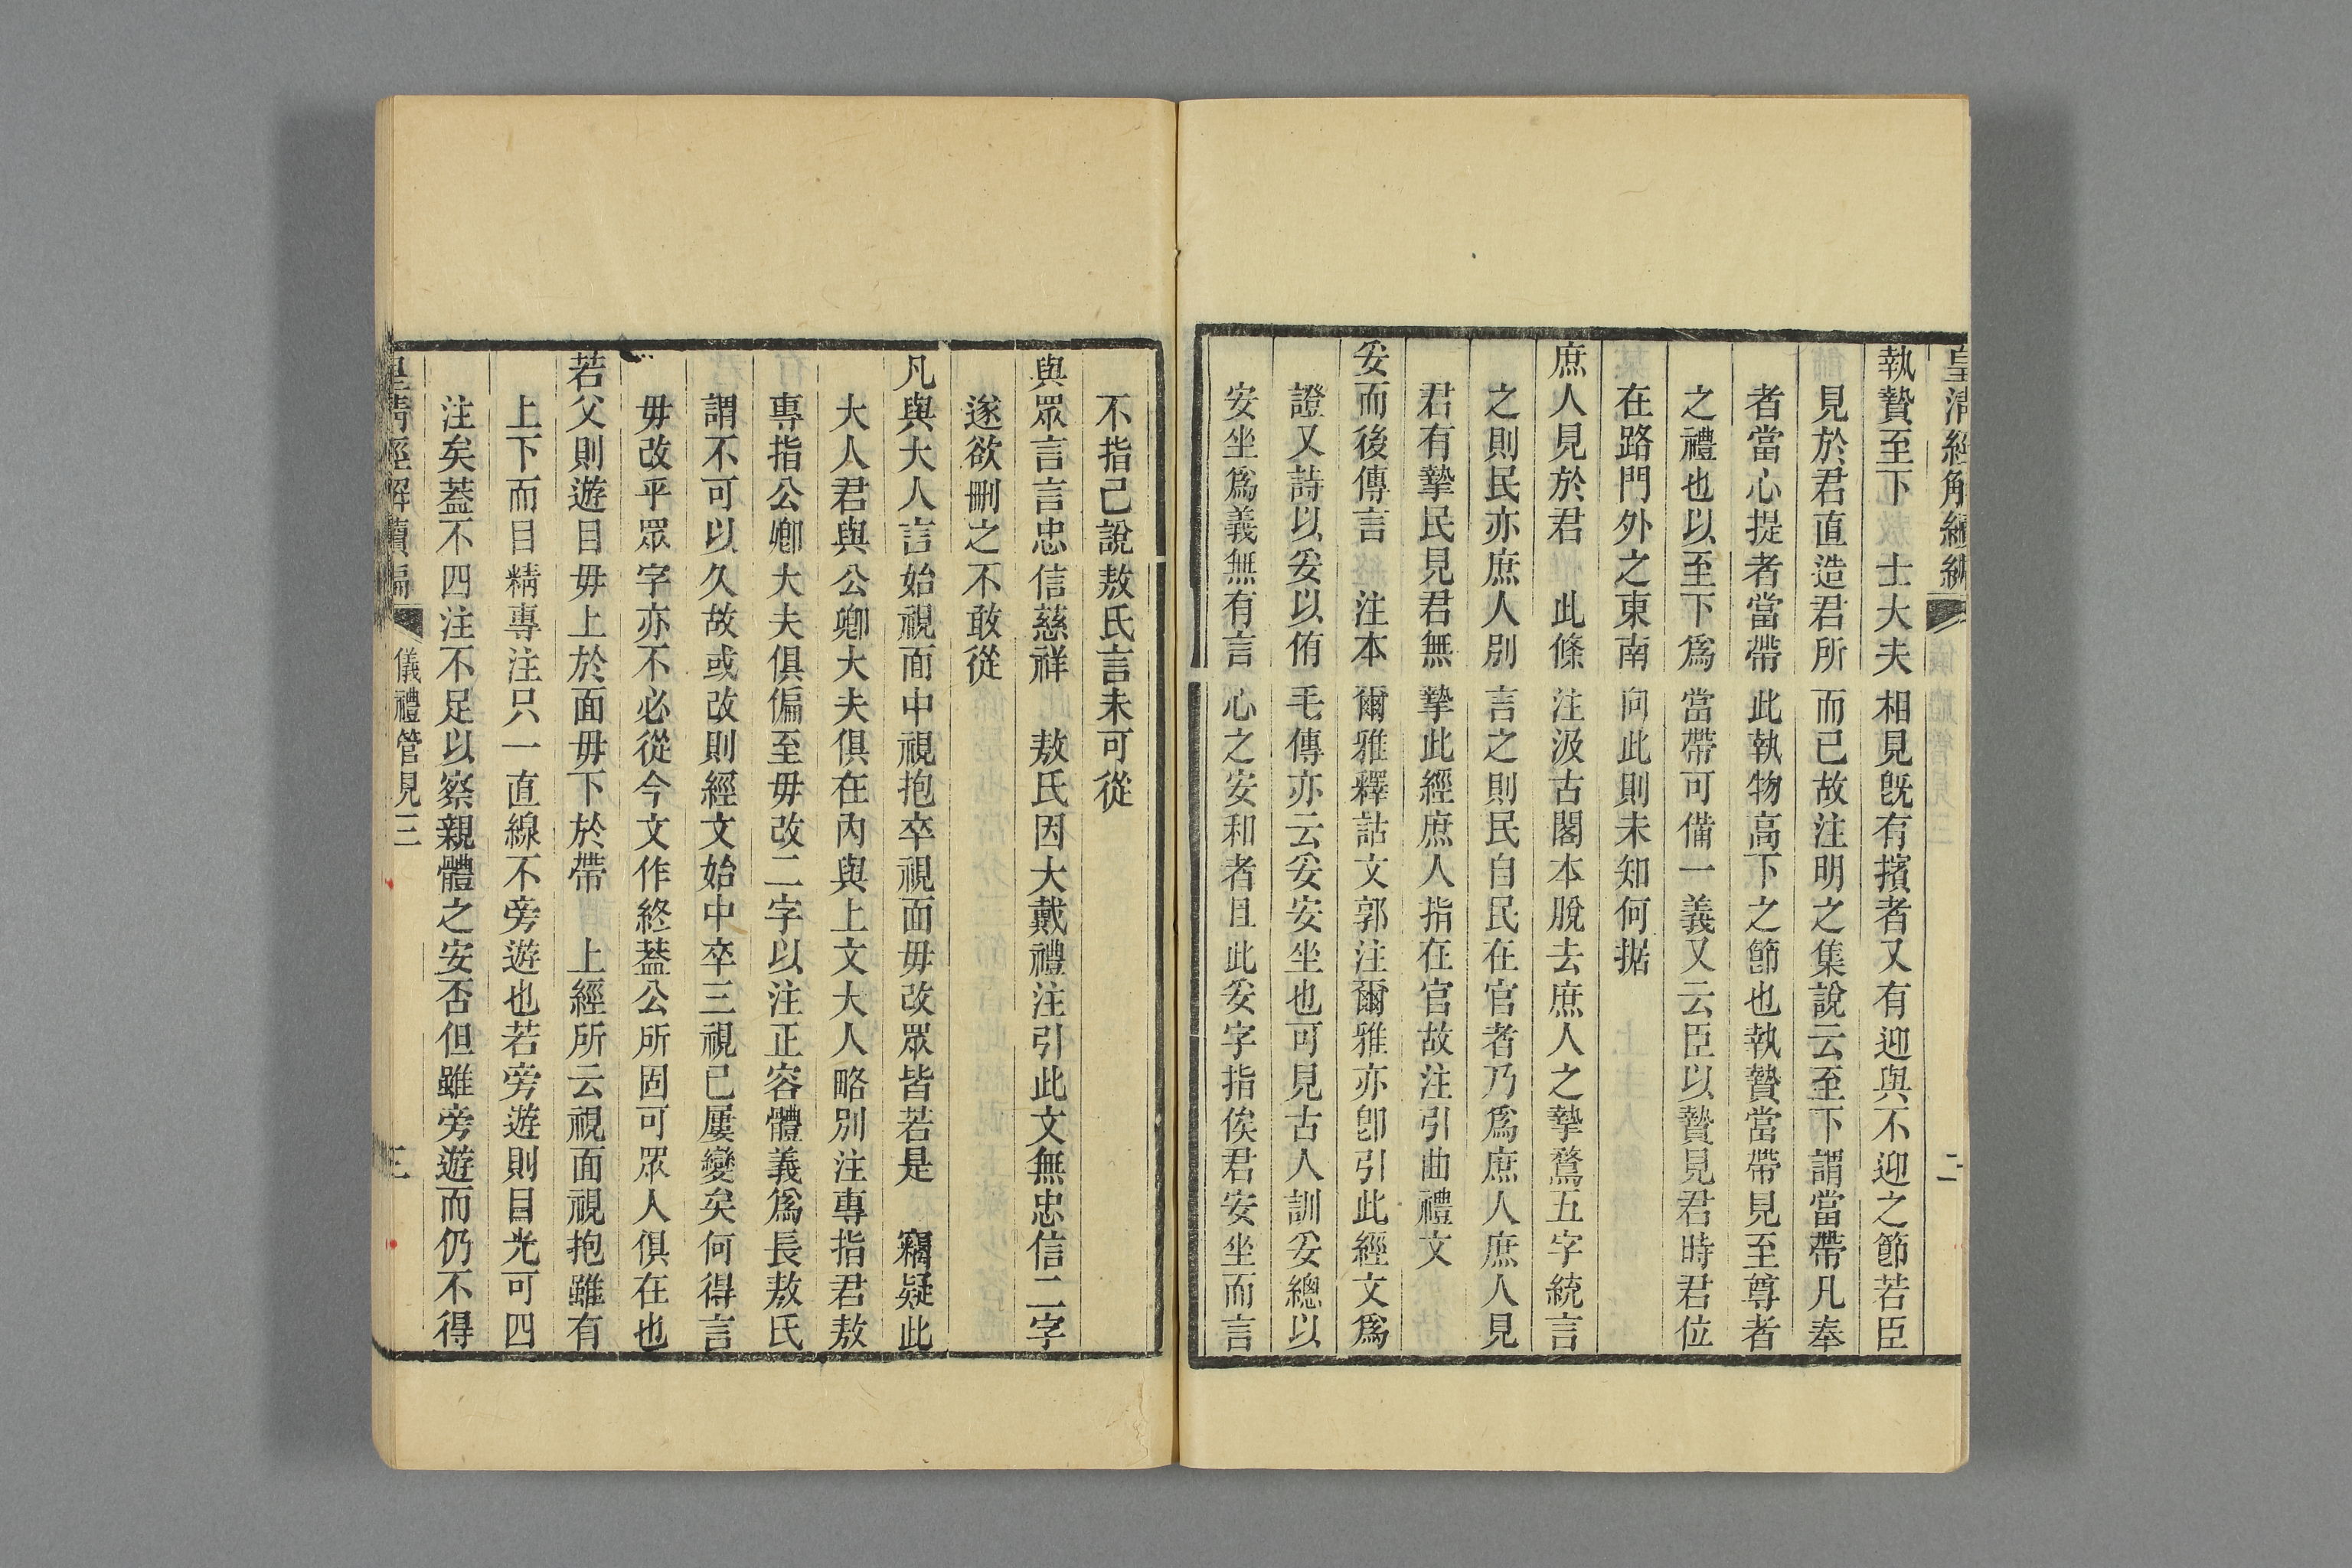 皇清經解續編
二
執贄至下　士大夫相見既有擯者又有迎與不迎之節若臣
見於君直造君所而已故注明之集說云至下謂當帶凡奉
者當心提者當帶此執物高下之節也執贄當帶見至尊者
之禮也以至下爲當帶可備一義又云臣以贄見君時君位
在路門外之東南向此則未知何据
庶人見於君　此條注汲古閣本脫去庶人之摯鶩五字統言
之則民亦庶人別言之則民自民在官者乃爲庶人庶人見
君有摯民見君無摯此經庶人指在官故注引曲禮文
妥而後傳言　注本爾雅釋詁文郭注爾雅亦卽引此經文爲
證又詩以妥以侑毛傳亦云妥安坐也可見古人訓妥總以
安坐爲義無有言心之安和者且此妥字指俟君安坐而言
不指己說敖氏言未可從
與眾言言忠信慈祥　敖氏因大戴禮注引此文無忠信二字
遂欲刪之不敢從
凡與大人言始視面中視抱卒視面毋改眾皆若是　竊疑此
大人君與公卿大夫俱在內與上文大人略別注專指君敖
專指公卿大夫俱偏至毋改二字以注正容體義爲長敖氏
謂不可以久故或改則經文始中卒三視已屢變矣何得言
毋改乎眾字亦不必從今文作終葢公所固可眾人俱在也
若父則遊目毋上於面毋下於帶　上經所云視面視抱雖有
上下而目精專注只一直線不旁遊也若旁遊則目光可四
注矣葢不四注不足以察親體之安否但雖旁遊而仍不得
皇清經解續編
儀禮管見三
三